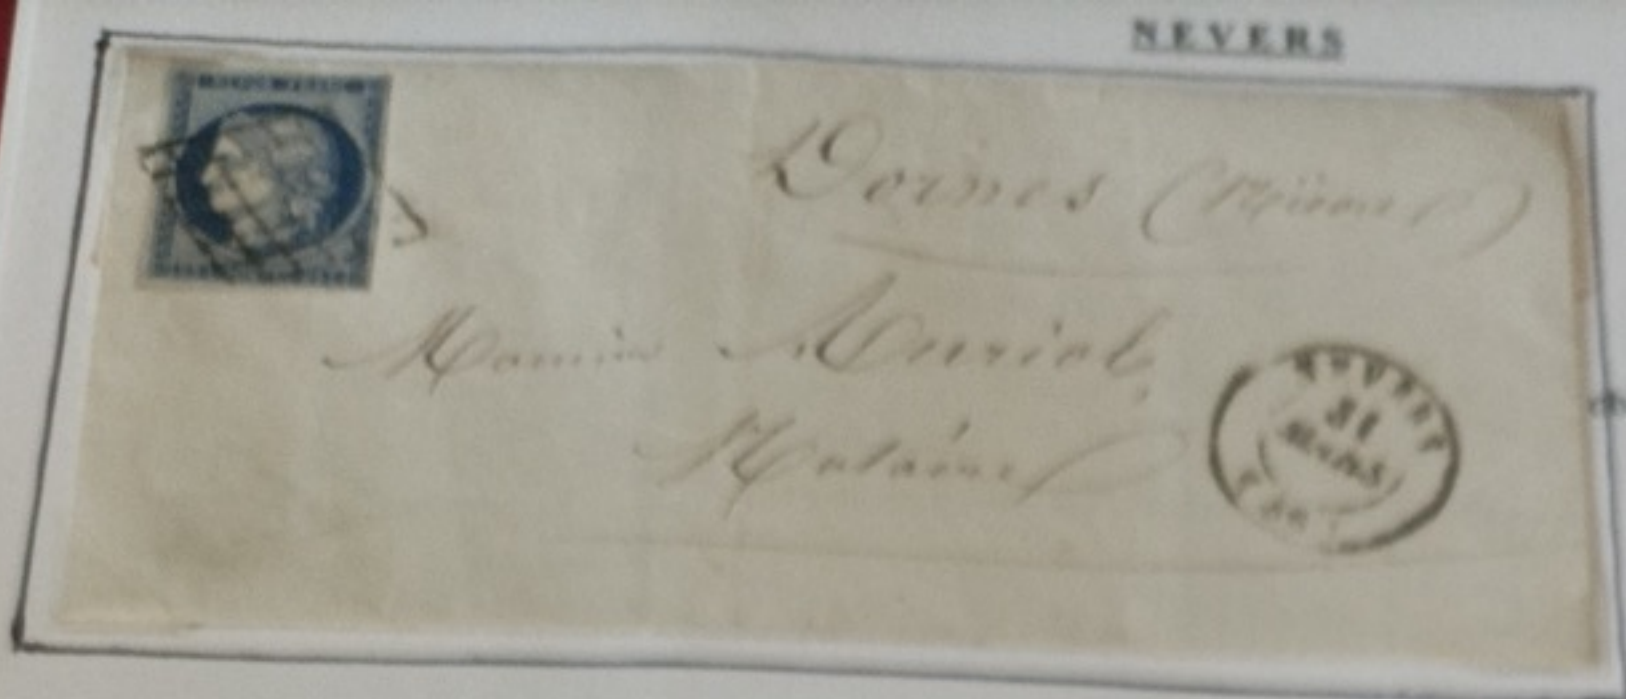 NEVERS
Dornes (Nièvre)
Monsieur Auriol,
Notaire
31
MARS